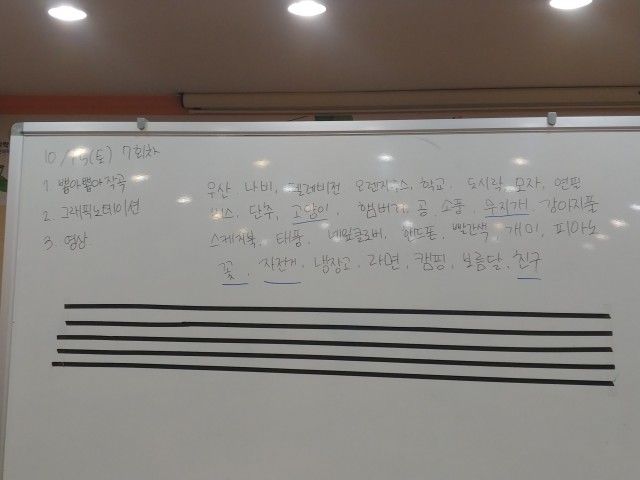 10/15(토) 7회차
1. 뽑아뽑아작곡
2. 그래픽노테이션
3. 영상
우산 나비, 텔레비전 오렌지쥬스, 학교, 도시락, 모자, 연필
버스, 단추, 고양이, 햄버거, 공, 소풍, 무지개, 강아지풀
스케치북, 태풍, 네잎클로버, 핸드폰, 빨간색, 개미, 피아노
꽃, 자전거, 냉장고, 라면, 캠핑, 보름달, 친구